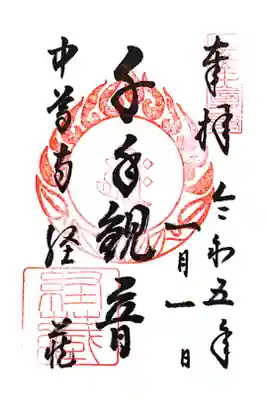 奉拝
令和五年
一月一日
千手観音
中尊寺経蔵
経蔵